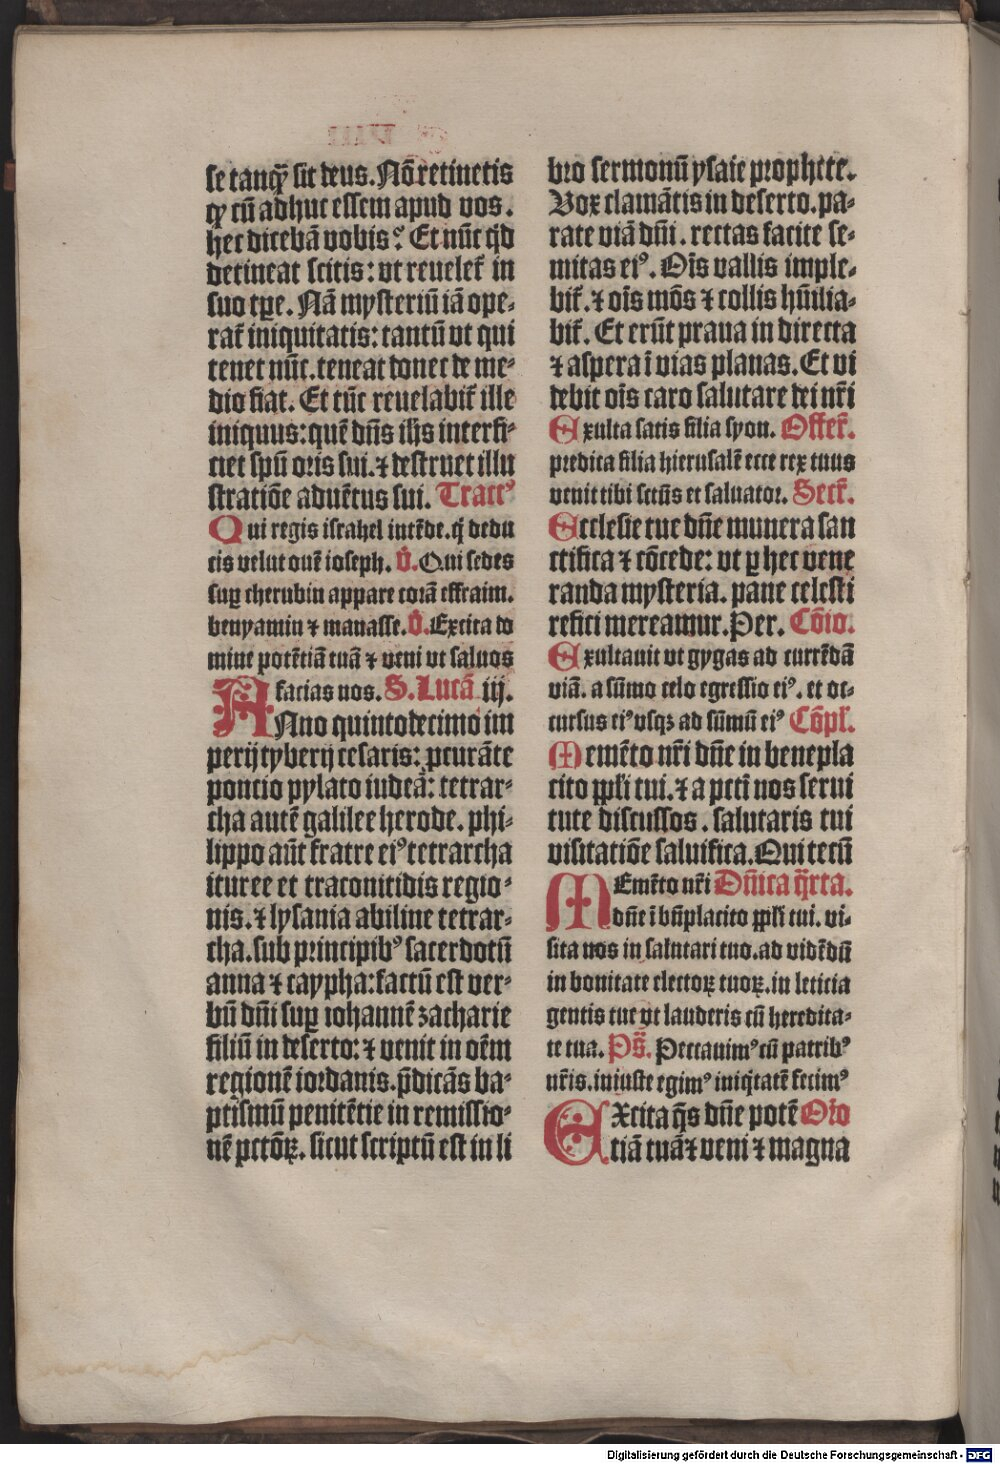 se tanqꝫ sit deus. Nō retinetis
qꝫ cū adhuc essem apud vos.
hec dicebā vobis? Et nūc qd̄
detineat scitis: vt reuelet̄ in
suo tꝑe. Nā mysteriū iā ope-
rat̄ iniquitatis: tantū vt qui
tenet nūc. teneat donec de me-
dio fiat. Et tūc reuelabit̄ ille
iniquus: quē dn̄s ih̄s interfi-
ciet spū oris sui. ⁊ destruet illu
stratiōe aduētus sui. Tractꝰ
Qui regis israhel intēde. q̇ dedu
cis velut ouē ioseph. V̇. Qui sedes
suꝑ cherubin appare corā effraim.
benyamin ⁊ manasse. V̇. Excita do
mine potētiā tuā ⁊ veni vt saluos
facias nos. S. Lucā iij.
ANno quintodecimo im
perij tyberij cesaris: ꝓcurāte
poncio pylato iudeā: tetrar-
cha autē galilee herode. phi-
lippo aūt fratre eiꝰ tetrarcha
ituree et traconitidis regio-
nis. ⁊ lysania abiline tetrar-
cha. sub principibꝰ sacerdotū
anna ⁊ caypha: factū est ver-
bū dn̄i suꝑ iohannē zacharie
filiū in deserto: ⁊ venit in oēm
regionē iordanis. p̄dicās ba-
ptismū penitētie in remissio-
nē pctōꝝ. sicut scriptū est in li
bro sermonū ysaie prophete.
Vox clamātis in deserto. pa-
rate viā dn̄i. rectas facite se-
mitas eiꝰ. Oīs vallis imple-
bit̄. ⁊ oīs mōs ⁊ collis hūilia-
bit̄. Et erūt praua in directa
⁊ aspera ī vias planas. Et vi
debit oīs caro salutare dei nr̄i
Exulta satis filia syon. Offer̄.
predica filia hierusalē ecce rex tuus
venit tibi sctūs et saluator. Secr̄.
Ecclesie tue dn̄e munera san
ctifica ⁊ cōcede: vt ꝑ hec vene
randa mysteria. pane celesti
refici mereamur. Per. Cōio.
Exultauit vt gygas ad currēdā
viā. a sūmo celo egressio eiꝰ. et oc-
cursus eiꝰ vsqꝫ ad sūmū eiꝰ Cōpl̄.
Memēto nr̄i dn̄e in benepla
cito ppl̄i tui. ⁊ a pctī nos serui
tute discussos. salutaris tui
visitatiōe saluifica. Qui tecū
MEmēto nr̄i Dn̄ica q̄rta.
dn̄e ī bn̄placito ppl̄i tui. vi-
sita nos in salutari tuo. ad vidēdū
in bonitate electoꝝ tuoꝝ. in leticia
gentis tue vt lauderis cū heredita-
te tua. Ps̄. Peccauimꝰ cū patribꝰ
nr̄is. iniuste egimꝰ iniq̇tatē fecimꝰ
EXcita q̄s dn̄e potē Orō
tiā tuā ⁊ veni ⁊ magna
Digitalisierung gefördert durch die Deutsche Forschungsgemeinschaft - DFG